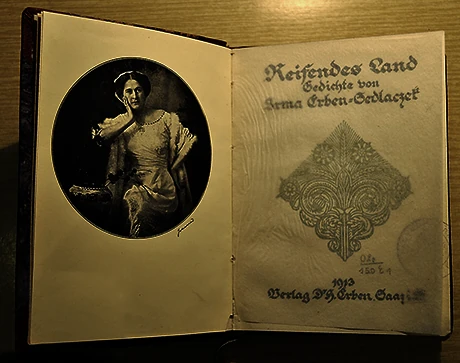 Reifendes Land
Gedichte von
Irma Erben-Sedlaczek
1913
Verlag Dr H. Erben, Saaz